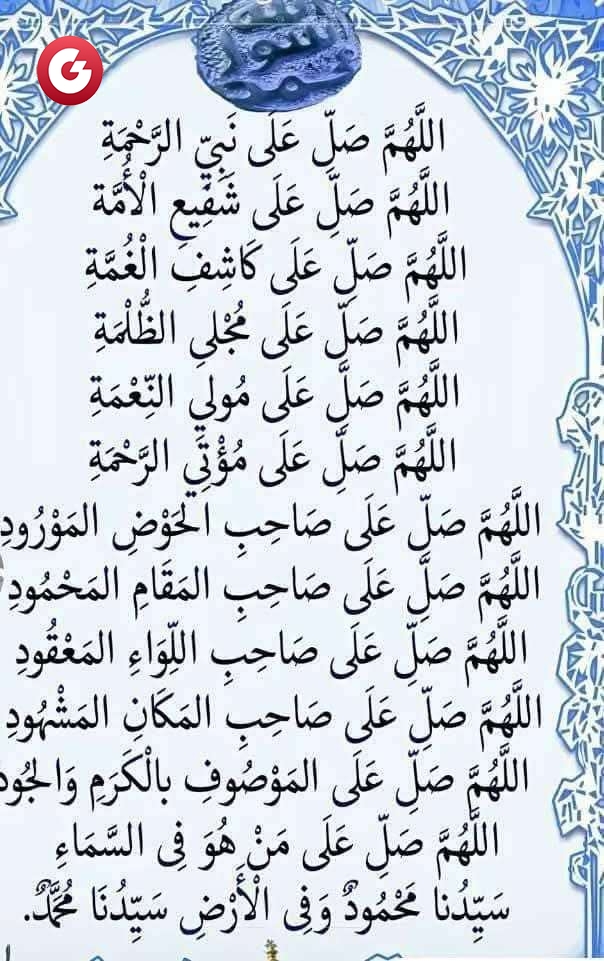 اللَّهُمَّ صَلِّ عَلَى نَبِيِّ الرَّحْمَةِ
اللَّهُمَّ صَلِّ عَلَى شَفِيعِ الْأُمَّة
اللَّهُمَّ صَلِّ عَلَى كَاشِفِ الْغُمَّةِ
اللَّهُمَّ صَلِّ عَلَى مُجْلِي الظُّلْمَةِ
اللَّهُمَّ صَلِّ عَلَى مُولِي النِّعْمَةِ
اللَّهُمَّ صَلِّ عَلَى مُؤْتِي الرَّحْمَةِ
اللَّهُمَّ صَلِّ عَلَى صَاحِبِ الحَوْضِ المَوْرُودِ
اللَّهُمَّ صَلِّ عَلَى صَاحِبِ المَقَامِ المَحْمُودِ
اللَّهُمَّ صَلِّ عَلَى صَاحِبِ اللِّوَاءِ المَعْقُودِ
اللَّهُمَّ صَلِّ عَلَى صَاحِبِ المَكَانِ المَشْهُودِ
اللَّهُمَّ صَلِّ عَلَى المَوْصُوفِ بالْكَرَمِ وَالجُودِ
اللَّهُمَّ صَلِّ عَلَى مَنْ هُوَ فِى السَّمَاءِ
سَيِّدُنا مَحْمُودٌ وَفِى الْأَرْضِ سَيِّدُنَا مُحَمَّدٌ.